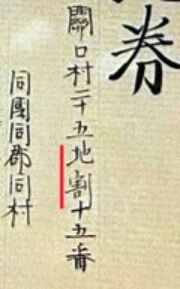 券
關口村二十五地割十五番
同國同郡同村